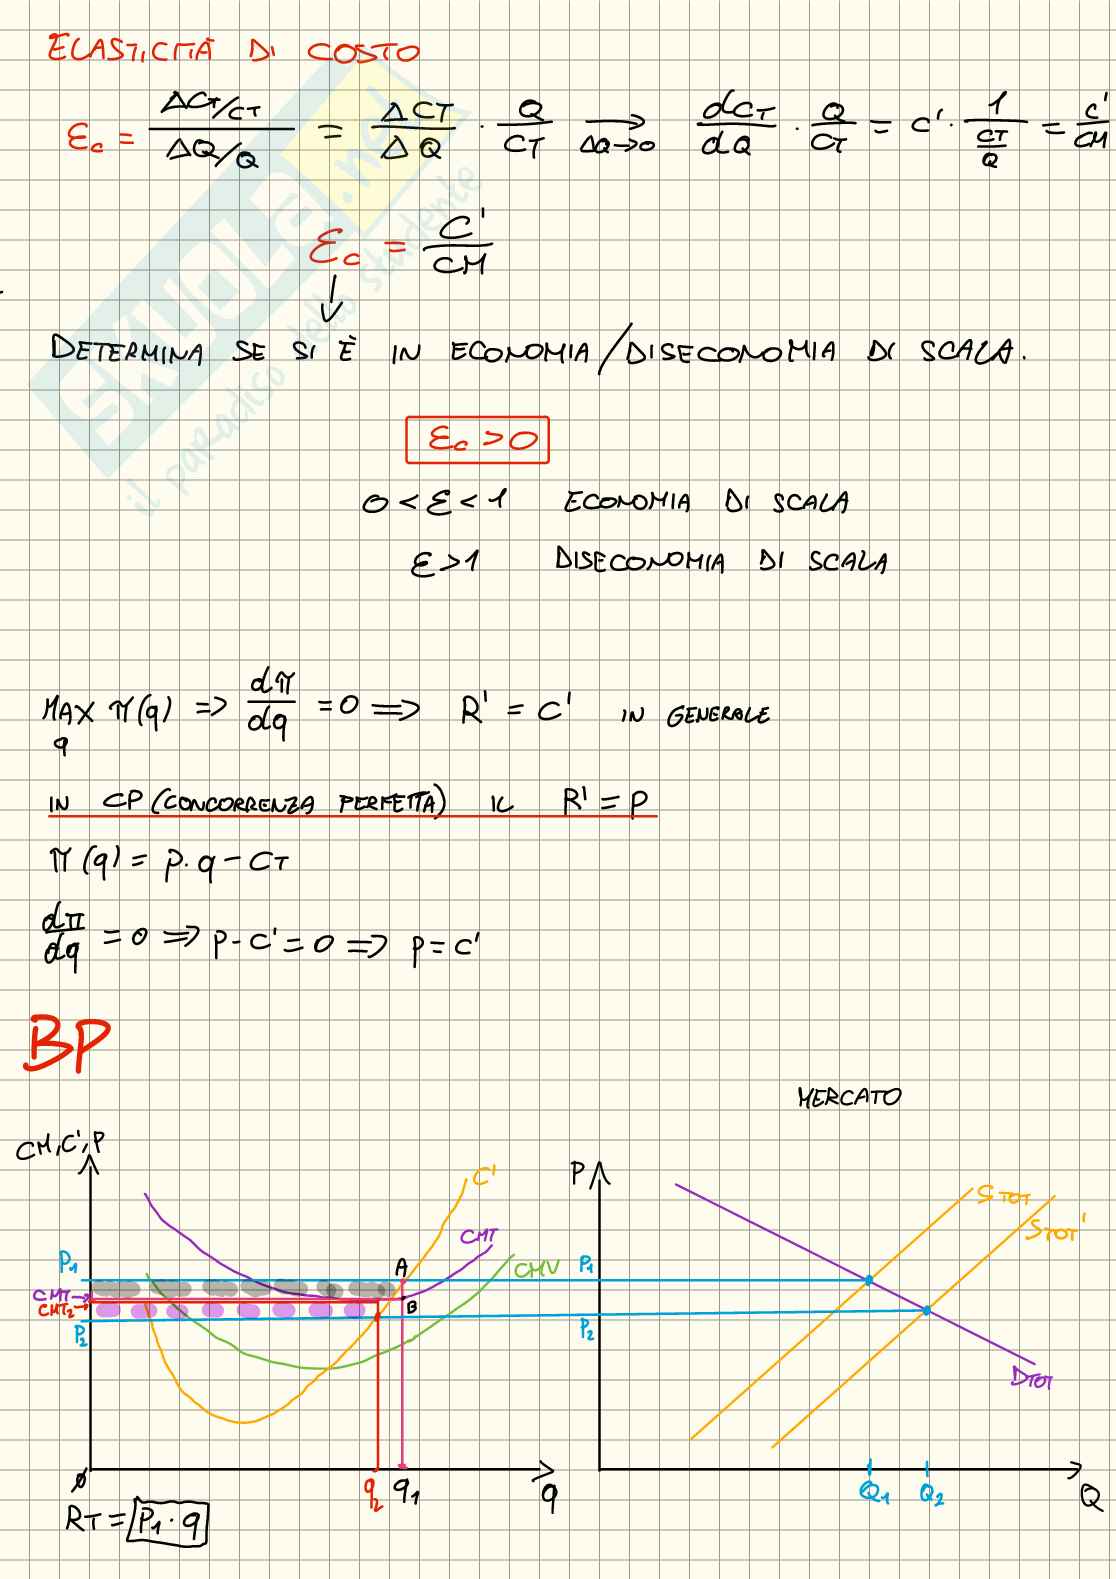 ELASTICITÀ DI COSTO
εc = ΔCT/CT / ΔQ/Q = ΔCT/ΔQ · Q/CT → ΔQ→0 dCT/dQ · Q/CT = C' · 1/(CT/Q) = C'/CM
εc = C'/CM
↓
DETERMINA SE SI È IN ECONOMIA/DISECONOMIA DI SCALA.
εc > 0
0 < ε < 1 ECONOMIA DI SCALA
ε > 1 DISECONOMIA DI SCALA
MAX π(q) => dπ/dq = 0 => R' = C' IN GENERALE
q
IN CP (CONCORRENZA PERFETTA) IL R' = P
π(q) = p · q - CT
dπ/dq = 0 => p - C' = 0 => p = C'
BP
MERCATO
CM, C', P
C'
CMT
CMV
P1
A
CMT
CMT2
B
P2
0
q2
q1
q
RT = P1 · q
P
STOT
STOT'
P1
P2
DTOT
Q1
Q2
Q
SKUOLA.net
il paradiso dello studente